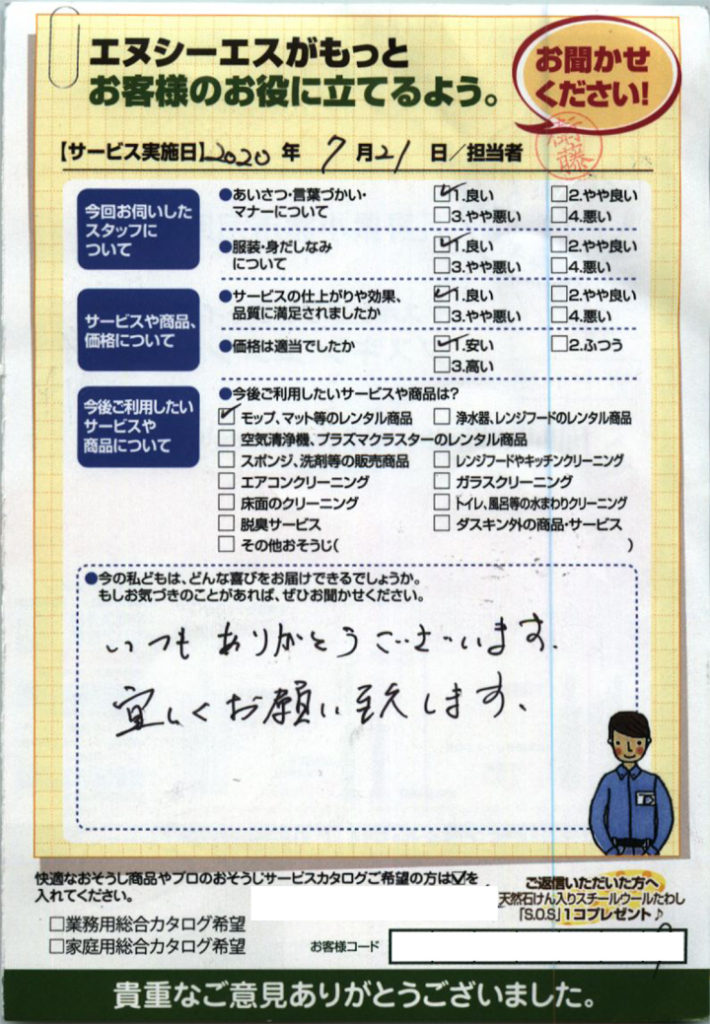 エヌシーエスがもっと
お客様のお役に立てるよう。
お聞かせ
ください!
【サービス実施日】2020年 7月21日/担当者
衛藤
今回お伺いした
スタッフに
ついて
●あいさつ・言葉づかい・
マナーについて
☑1.良い □2.やや良い
□3.やや悪い □4.悪い
●服装・身だしなみ
について
☑1.良い □2.やや良い
□3.やや悪い □4.悪い
サービスや商品、
価格について
●サービスの仕上がりや効果、
品質に満足されましたか
☑1.良い □2.やや良い
□3.やや悪い □4.悪い
●価格は適当でしたか
☑1.安い □2.ふつう
□3.高い
今後ご利用したい
サービスや
商品について
●今後ご利用したいサービスや商品は?
☑モップ、マット等のレンタル商品 □浄水器、レンジフードのレンタル商品
□空気清浄機、プラズマクラスターのレンタル商品
□スポンジ、洗剤等の販売商品 □レンジフードやキッチンクリーニング
□エアコンクリーニング □ガラスクリーニング
□床面のクリーニング □トイレ、風呂等の水まわりクリーニング
□脱臭サービス □ダスキン外の商品・サービス
□その他おそうじ( )
●今の私どもは、どんな喜びをお届けできるでしょうか。
もしお気づきのことがあれば、ぜひお聞かせください。
いつもありがとうございます.
宜しくお願い致します、
快適なおそうじ商品やプロのおそうじサービスカタログご希望の方は☑を
入れてください。
□業務用総合カタログ希望
□家庭用総合カタログ希望
お客様コード
ご返信いただいた方へ
天然石けん入りスチールウールたわし
「S.O.S」1コプレゼント♪
貴重なご意見ありがとうございました。